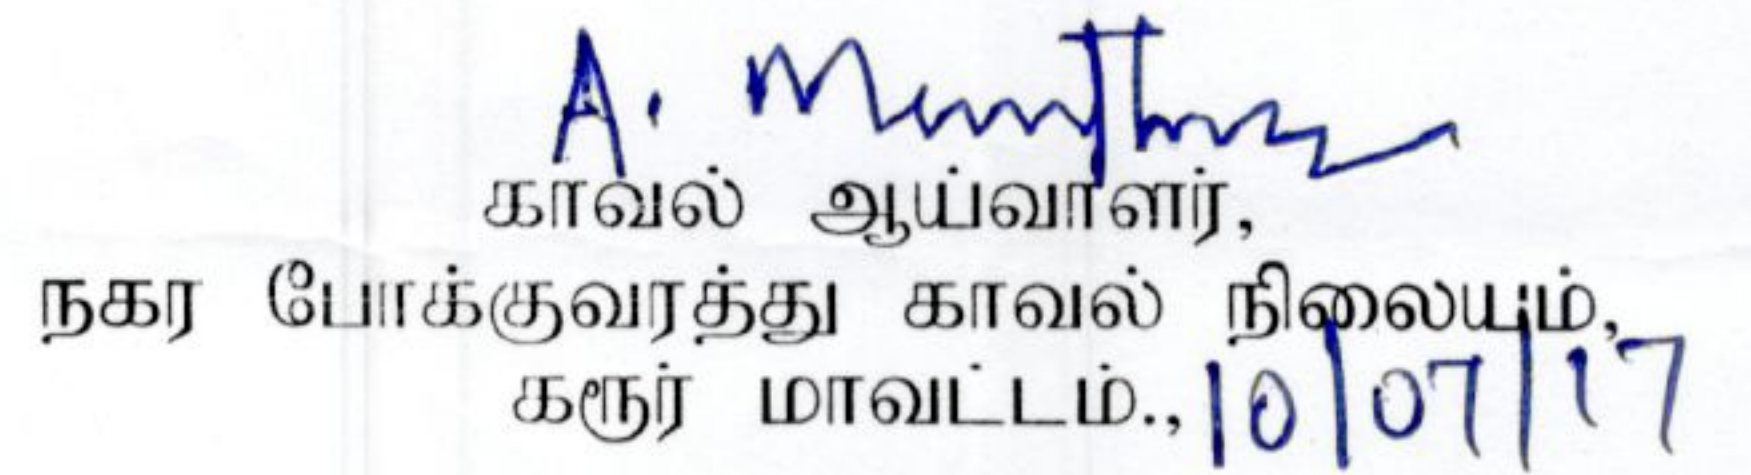 A.
காவல் ஆய்வாளர்,
நகர போக்குவரத்து காவல் நிலையம்,
கரூர் மாவட்டம்., 10/07/17